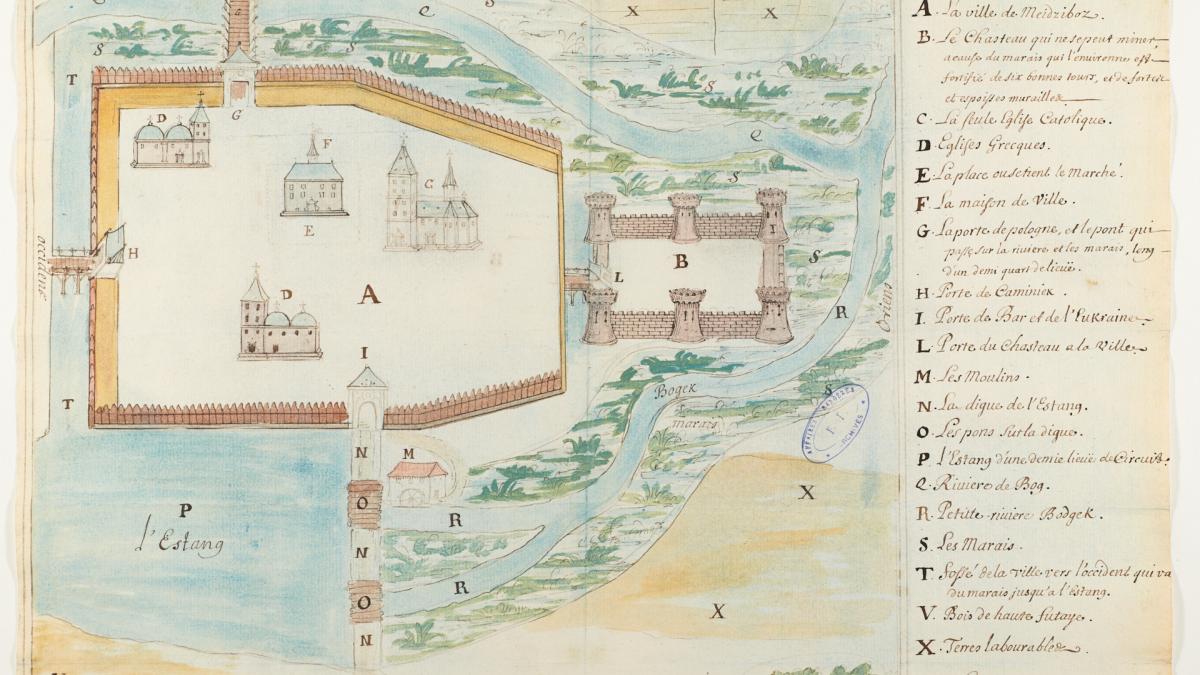 A. La ville de Meidziboz.
B. Le Chasteau qui ne se peut miner,
a cause du marais qui l'environne est
fortifié de six bonnes tours, et de fortes
et espoisses murailles.
C. La seule Eglise Catolique.
D. Eglises Grecques.
E. La place ou se tient le Marché.
F. La maison de Ville.
G. La porte de pologne, et le pont qui
passe sur la riviere et les marais, long
d'un demi quart de lieüe.
H. Porte de Caminiek.
I. Porte de Bar et de l'Eukraine.
L. Porte du Chasteau a la Ville.
M. Les Moulins.
N. La digue de l'Estang.
O. Les pons sur la digue.
P. l'Estang d'une demie lieüe de Circuit.
Q. Riviere de Bog.
R. Petitte riviere Bodgek.
S. Les Marais.
T. Fossé de la ville vers l'occident qui va
du marais jusqu'a l'Estang.
V. Bois de haute futaye.
X. Terres labourables
Q
S
X
X
S
S
T
S
G
D
F
C
E
Q
S
H
occident
D
A
B
L
S
R
Oriens
I
T
Bogek
marais
S
AFFAIRES ETRANGERES
ARCHIVES
N
M
O
R
P
l'Estang
N
O
R
N
X
X